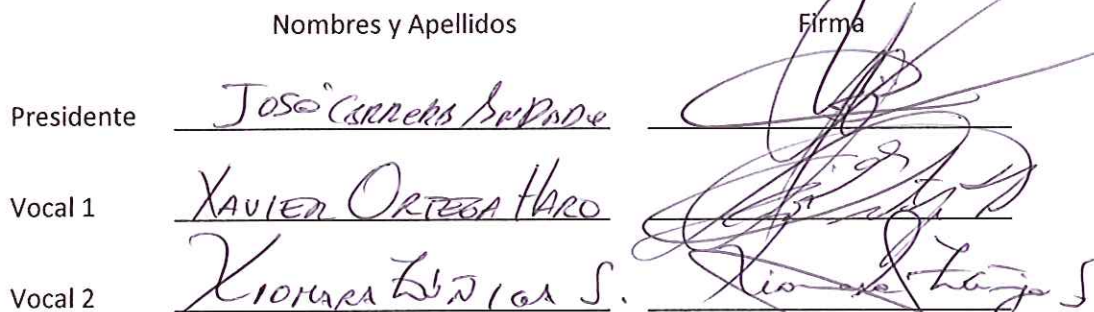 Nombres y Apellidos Firma
Presidente José Carrera Andrade
Vocal 1 Xavier Ortega Haro
Vocal 2 Xiomara Zúñiga S. Xiomara Zúñiga S